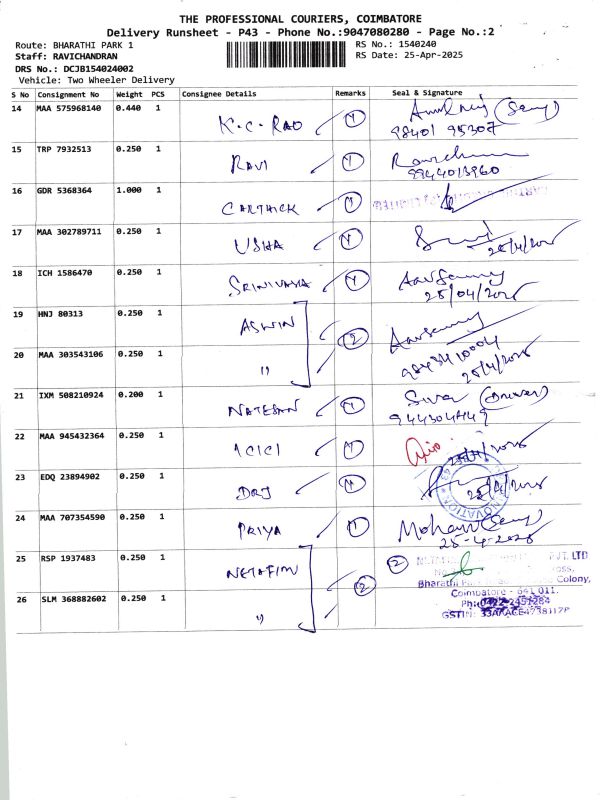 THE PROFESSIONAL COURIERS, COIMBATORE
Delivery Runsheet - P43 - Phone No.:9047080280 - Page No.:2
Route: BHARATHI PARK 1
RS No.: 1540240
Staff: RAVICHANDRAN
RS Date: 25-Apr-2025
DRS No.: DCJB154024002
Vehicle: Two Wheeler Delivery
S No Consignment No Weight PCS Consignee Details Remarks Seal & Signature
14 MAA 575968140 0.440 1 K.C. RAO 1
98401 95307
15 TRP 7932513 0.250 1 RAVI 1
9944013960
16 GDR 5368364 1.000 1 CARTHICK 1
17 MAA 302789711 0.250 1 USHA 1
25/4/2025
18 ICH 1586470 0.250 1 SRINIVASA 1
25/04/2025
19 HNJ 80313 0.250 1 ASWIN 2
20 MAA 303543106 0.250 1 "
25/4/2025
21 IXM 508210924 0.200 1 NATESAN 1 Siva (Driver)
22 MAA 945432364 0.250 1 ICICI 1
23 EDQ 23894902 0.250 1 1
24 MAA 707354590 0.250 1 PRIYA 1 Mohan
25-4-2025
25 RSP 1937483 0.250 1 NETAFIM 2 2
PVT. LTD
Colony,
26 SLM 368882602 0.250 1 "
Coimbatore - 641 011.
Ph: 0422-2451284